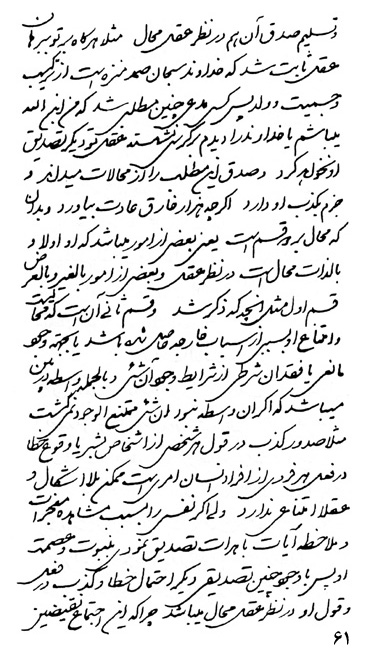 و تسلیم صدق آن هم در نظر عقل محال مثلا هرگاه بر تو ببرهان
عقلی ثابت شد که خداوند سبحان صمد منزه است از ترکیب
و جسمیت و ولد پس کسی مدعی چنین مطلبی شد که من ابن الله
میباشم یا خداوند را دیدم بر کرسی نشسته عقل تو دیگر تصدیق
او نخواهد کرد و صدق این مطلب را از محالات میداند و
جزم بکذب او دارد اگرچه هزار خارق عادت بیاورد و بدان
که محال بر دو قسم است یعنی بعضی از امور میباشد که او اولا و
بالذات محال است در نظر عقل و بعضی از امور بالغیر و بالعرض
قسم اول مثل آنچه که ذکر شد و قسم ثانی آن است که
و امتناع او بسببی از اسباب خارجه حاصل شده باشد یا بجهة وجود
مانعی یا فقدان شرطی از شرایط وجود آن شئ و بالجمله واسطه در بین
میباشد که اگر ان واسطه نبود ان شئ ممتنع الوجود نمیگشت
مثلا صدور کذب در قول هر شخصی از اشخاص بشر یا وقوع خطا
در فعل هر فردی از افراد انسان امری است ممکن بلا اشکال و
عقلا امتناعی ندارد ولی اگر نفسی را بسبب مشاهده معجزات
و ملاحظه آیات باهرات تصدیق نمود به نبوت و عصمت
او پس با وجود چنین تصدیقی دیگر احتمال خطا و کذب در فعل
و قول او در نظر عقل محال میباشد چرا که این اجتماع نقیضین
۶۱